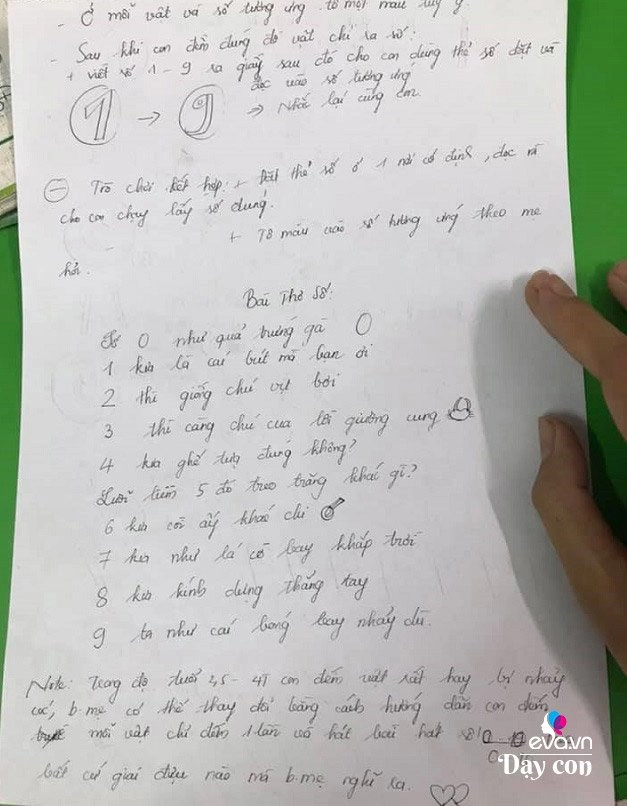 - Ở mỗi vật và số tương ứng tô một màu tuỳ ý.
- Sau khi con đếm đúng đồ vật chỉ ra số:
+ viết số 1 - 9 ra giấy sau đó cho con dùng thẻ số đặt và
đọc vào số tương ứng
1 → 9 ⇒ Nhắc lại cùng em.
- Trò chơi kết hợp: + Đặt thẻ số ở 1 nơi cố định, đọc và
cho con chạy lấy số đúng.
+ Tô màu vào số tương ứng theo mẹ
hỏi.
Bài Thơ Số:
Số 0 như quả trứng gà 0
1 kia là cái bút mà bạn ơi
2 thì giống chú vịt bơi
3 thì càng chú cua lôi giường cung
4 kia ghế tựa đúng không?
Lưỡi liềm 5 đó treo trăng khác gì?
6 kia còi ấy khác chi
7 kia như lá cờ bay khắp trời
8 kia kính dựng thẳng tay
9 ta như cái bóng bay nhảy dù.
Note: Trong độ tuổi 2,5 - 4T con đếm vật rất hay bị nhảy
cóc, b.mẹ có thể thay đổi bằng cách hướng dẫn con đếm
mỗi vật chỉ đếm 1 lần và hát bài hát số
bất cứ giai điệu nào mà b.mẹ nghĩ ra.
eva.vn
Dạy con